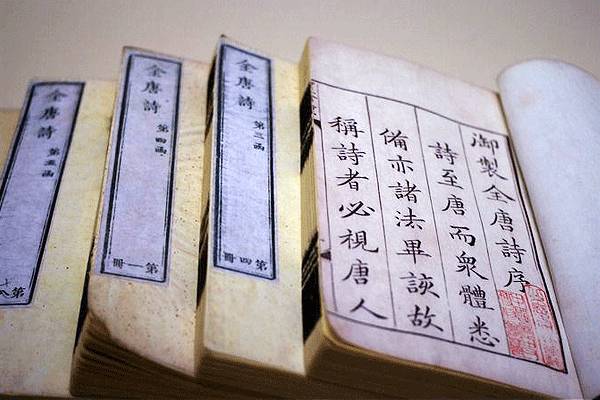 御製全唐詩序
詩至唐而衆體悉
備亦諸法畢該故
稱詩者必視唐人
全唐詩 第三函
第四冊
全唐詩 第四函
第一冊
全唐詩 第五函
第